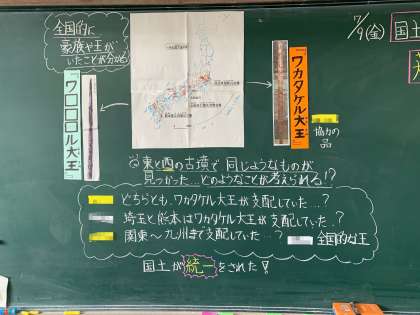 7/9(金)
国土
全国的に
豪族や王が
いたことが分かる
ワ□□□ル大王
『ワカタケル大王』
協力の
品
東と西の古墳で、同じようなものが
見つかった…どのようなことが考えられる!?
どちらも、ワカタケル大王が支配していた…?
埼玉と熊本はワカタケル大王が支配していた…?
関東〜九州まで支配していた…?
全国的な王
国土が統一をされた!